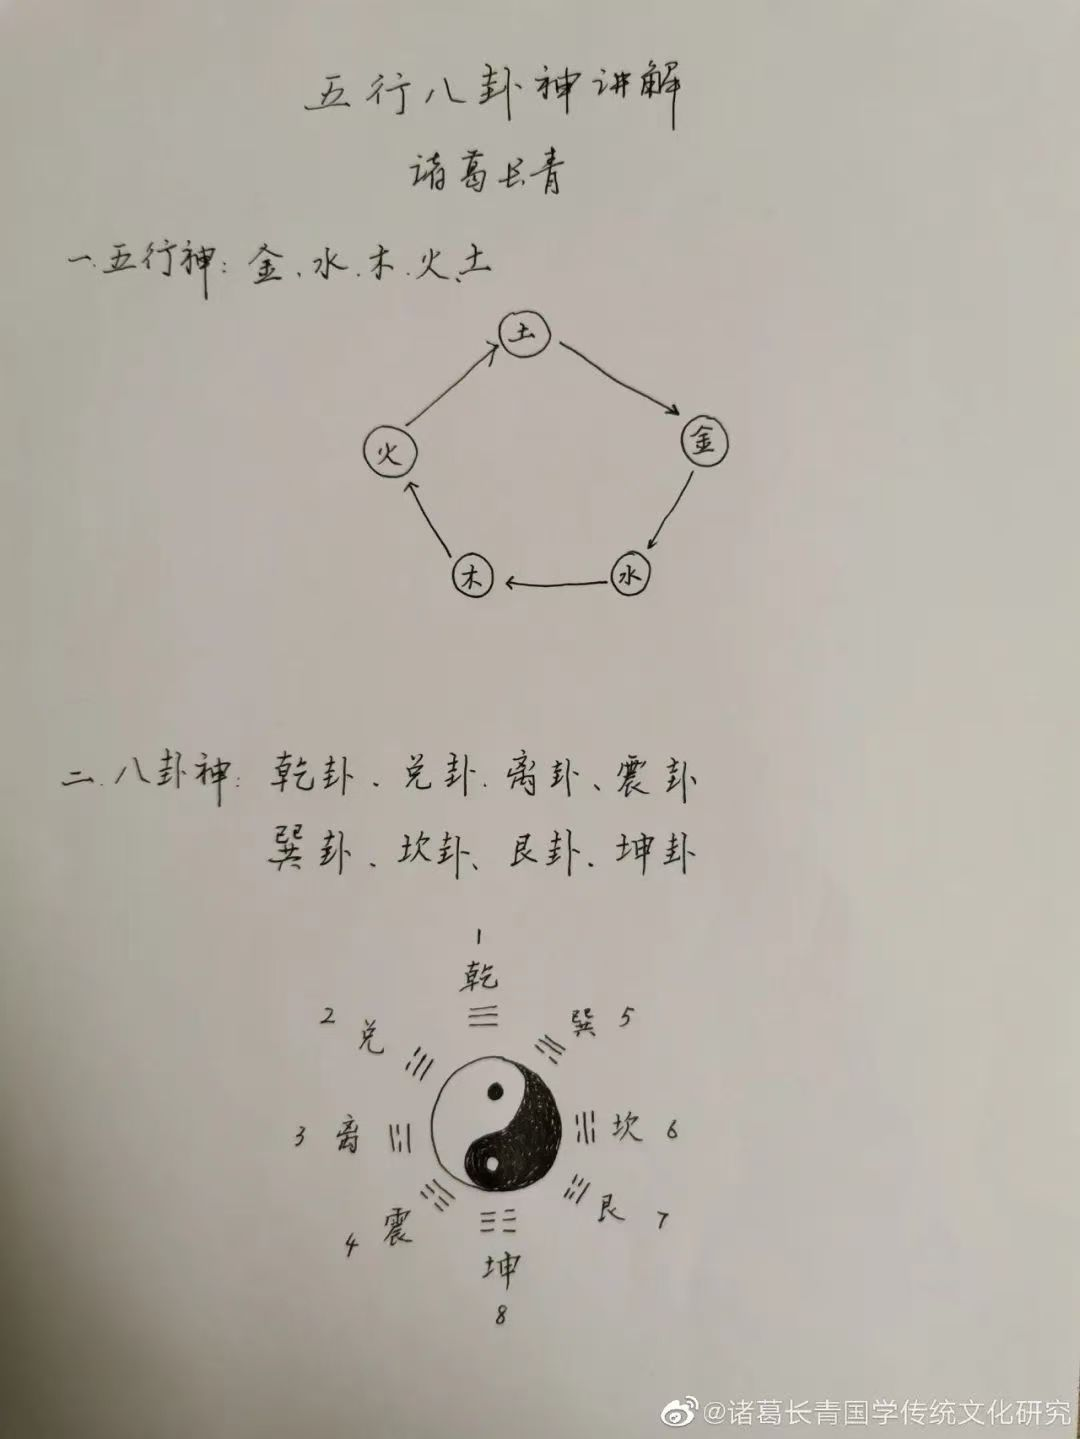 五行八卦神讲解
诸葛长青
一.五行神:金、水.木.火、土
土
火
金
木
水
二.八卦神:乾卦、兑卦.离卦、震卦
巽卦、坎卦、艮卦、坤卦
1
乾
2 兑
巽 5
3 离
坎 6
4 震
艮 7
坤
8
@诸葛长青国学传统文化研究